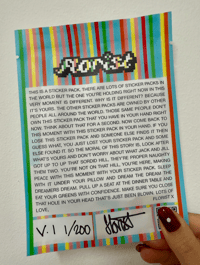 florist
THIS IS A STICKER PACK. THERE ARE LOTS OF STICKER PACKS IN
THE WORLD BUT THE ONE YOU'RE HOLDING RIGHT NOW IN THIS
VERY MOMENT IS DIFFERENT. WHY IS IT DIFFERENT? BECAUSE
IT'S YOURS. THE OTHER STICKER PACKS ARE OWNED BY OTHER
PEOPLE ALL AROUND THE WORLD. THOSE SAME PEOPLE DON'T
OWN THIS STICKER PACK THAT YOU HAVE IN YOUR HAND RIGHT
NOW. THINK ABOUT THAT FOR A SECOND. NOW COME BACK TO
THIS MOMENT WITH THIS STICKER PACK IN YOUR HAND. IF YOU
LOSE THIS STICKER PACK AND SOMEONE ELSE FINDS IT THEN
GUESS WHAT, YOU JUST LOST YOUR STICKER PACK AND SOME
ELSE FOUND IT. SO THE MORAL OF THIS STORY IS, LOOK AFTER
WHAT'S YOURS AND DON'T WORRY ABOUT WHAT JACK AND JILL
GOT UP TO UP THAT SORDID HILL. THEY'RE PROPER NAUGHTY
THEN TWO. YOU'RE NOT ON THAT HILL, YOU'RE HERE, MAKING
PEACE WITH THIS MOMENT WITH YOUR STICKER PACK. SLEEP
WITH IT UNDER YOUR PILLOW AND DREAM THE DREAM THE
DREAMERS DREAM. PULL UP A SEAT AT THE DINNER TABLE AND
EAT YOUR DREAMS WITH CONFIDENCE. MAKE SURE YOU CLOSE
THAT HOLE IN YOUR HEAD THAT'S JUST BEEN BLOWN. LOTS OF
LOVE,
FLORIST X
V.1 1/200 florist